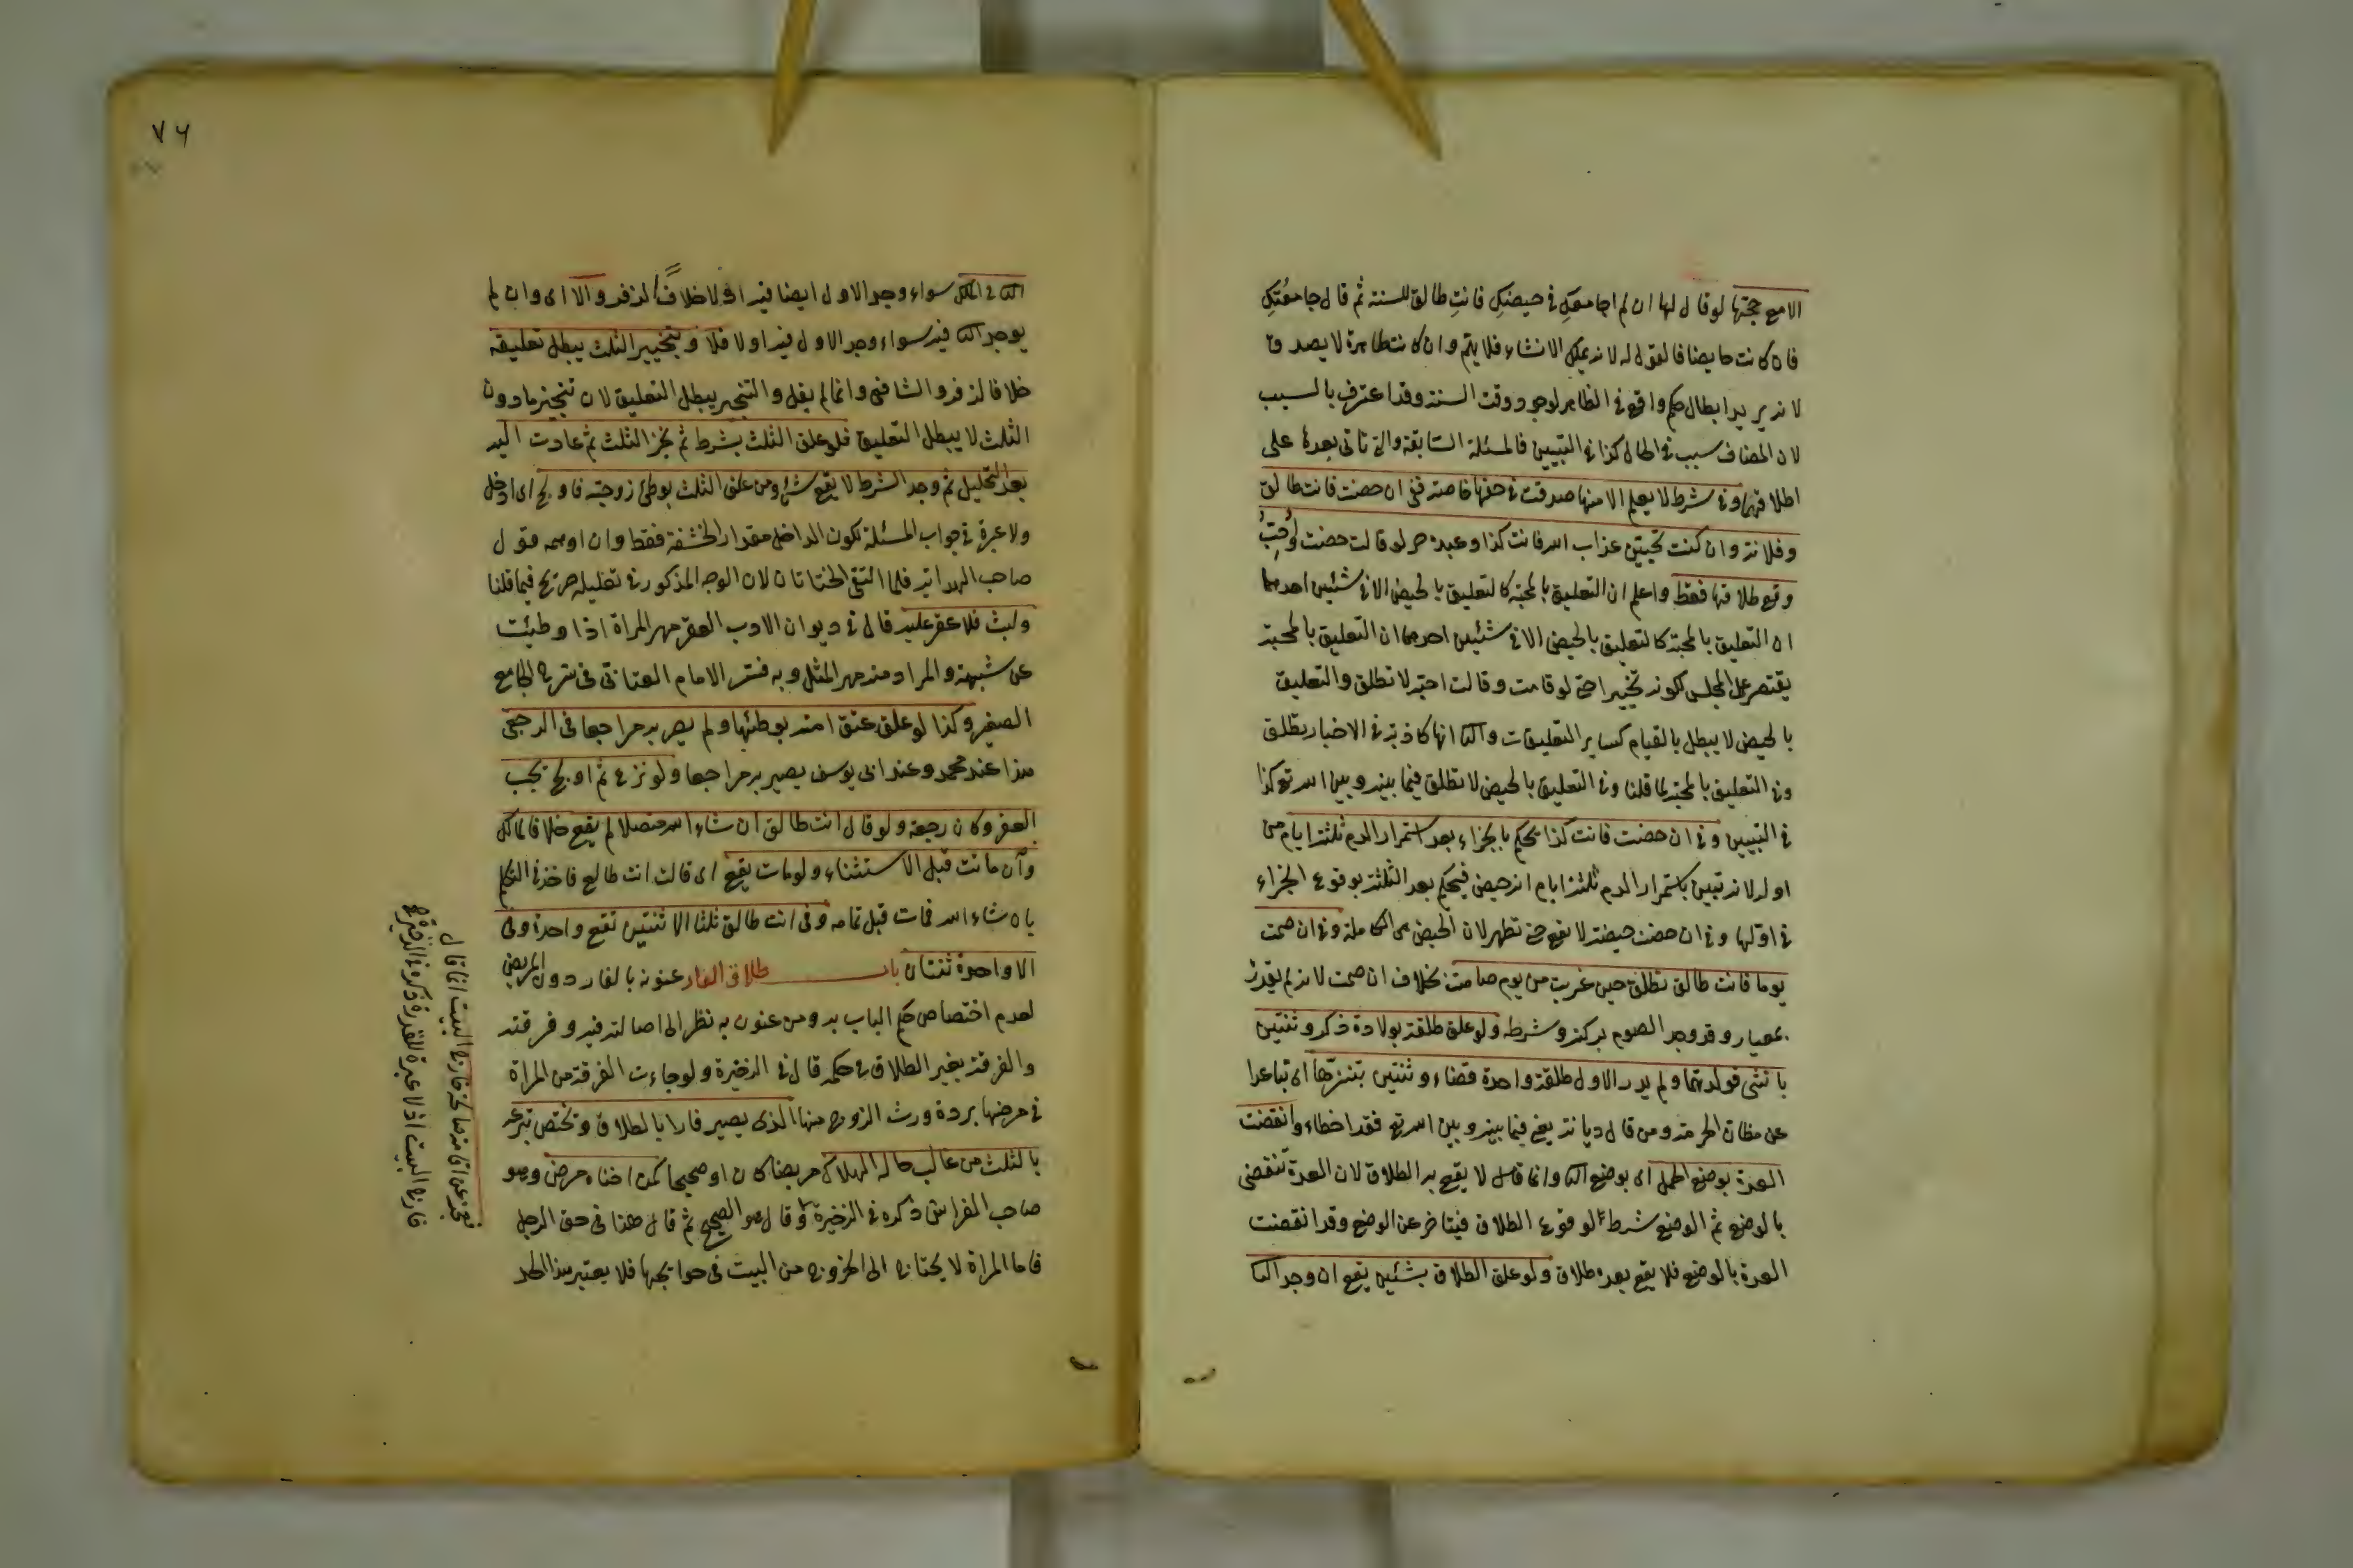 الا مع حجتها لو قال لها ان لم اجامعكِ في حيضكِ فانتِ طالق للسنة ثم قال جامعتكِ
فان كانت حايضا فالقول له لانه يملك الانشاء فلا يتهم وان كانت طاهرة لا يصدق
لانه يريد ابطال حكم واقع في الظاهر لوجود وقت السنة وقد اعترف بالسبب
لان المضاف سبب في الحال كذا في التبيين فالمسئلة السابقة والتي تاتي بعده على
اطلاقها وفي شرط لا يعلم الا منها صدقت في حقها خاصة ففي ان حضت فانت طالق
وفلانة وان كنت تحبين عذاب الله فانت كذا وعبده حر لو قالت حضت او احبُّ
وقع طلاقها فقط واعلم ان التعليق بالمحبة كالتعليق بالحيض الا في شئين احدهما
ان التعليق بالمحبة كالتعليق بالحيض الا في شئين احدهما ان التعليق بالمحبة
يقتصر على المجلس لكونه تخييرا حتى لو قامت وقالت احبه لا تطلق والتعليق
بالحيض لا يبطل بالقيام كساير التعليقات والثا انها كاذبة في الاخبار تطلق
في التعليق بالمحبة لما قلنا وفي التعليق بالحيض لا تطلق فيما بينه وبين الله تع كذا
في التبيين وفي ان حضت فانت كذا يحكم بالجزاء بعد استمرار الدم ثلثة ايام من
اوله لانه تبين باستمرار الدم ثلثة ايام انه حيض فيحكم بعد الثلثة بوقوع الجزاء
في اولها وفي ان حضت حيضة لا تقع حتى تطهر لان الحيض هي الكاملة وفي ان صمت
يوما فانت طالق تطلق حين غربت من يوم صامت بخلاف ان صمت لانه لم يقدر
بمعيار وقد وجد الصوم بركنه وشرطه ولو علق طلقة بولادة ذكر وثنتين
بانثى فولدتهما ولم يدر الاول طلقة واحدة قضاء وثنتين تنزّها اى تباعدا
عن مظان الحرمة ومن قال ديانة يعني فيما بينه وبين الله تع فقد اخطاء وانقضت
العدة بوضع الحمل اى بوضع الثا وانما قال لا يقع به الطلاق لان العدة تنقضى
بالوضع ثم الوضع شرط لوقوع الطلاق فيتاخر عن الوضع وقد انقضت
العدة بالوضع فلا يقع بعده طلاق ولو علق الطلاق بشئين يقع ان وجد الثا
٧٦
الثا في الملك سواء وجد الاول ايضا فيه او لا خلافاً لزفر والا اى وان لم
يوجد الثا فيه سواء وجد الاول فيه او لا فلا وتنجيز الثلث يبطل تعليقه
خلافا لزفر والشافعى وانما لم يقل والتنجيز يبطل التعليق لان تنجيز ما دون
الثلث لا يبطل التعليق فلو علق الثلث بشرط ثم نجز الثلث ثم عادت اليه
بعد التحليل ثم وجد الشرط لا يقع شئ ومن علق الثلث بوطئ زوجته فاولج اى ادخل
ولا عبرة في جواب المسئلة لكون الداخل مقدار الحشفة فقط وان اوهمه قول
صاحب الهداية فلما التقى الختانان لان الوجه المذكور في تعليله صريح فيما قلنا
ولبث فلا عقر عليه قال في ديوان الادب العقر مهر المراة اذا وطئت
عن شبهة والمراد منه مهر المثل وبه فسر الامام العتابي في شرح الجامع
الصغير وكذا لو علق عتق امته بوطئها ولم يصر به مراجعا فى الرجعى
هذا عند محمد وعند ابى يوسف يصير به مراجعا ولو نزع ثم اولج يجب
العقر وكان رجعة ولو قال انت طالق ان شاء الله متصلا لم يقع خلافا لمالك
وان ماتت قبل الاستثناء ولو مات يقع اى قالت انت طالع فاخذ في التكلم
بان شاء الله فمات قبل تمامه وفى انت طالق ثلثا الا ثنتين تقع واحدة وفى
الا واحدة ثنتان باب طلاق الفار عنونه بالفار دون المريض
لعدم اختصاص حكم الباب به ومن عنون به نظر الى اصالته فيه وفرقته
والفرقة بغير الطلاق في حكمه قال في الذخيرة ولو جاءت الفرقة من المراة
في مرضها بردة ورث الزوج منها الذى يصير فارا بالطلاق وتختص تبرعه
بالثلث من غالب حاله الهلاك مريضا كان او صحيحا كمن اضناه مرض وهو
صاحب الفراش ذكره في الذخيرة وقال هو الصحيح ثم قال هذا فى حق الرجل
فاما المراة لا يحتاج الى الخروج من البيت فى حوايجها فلا يعتبر هذا الحد
فعجز عن اقامة مصالحه خارج البيت انما قال
خارج البيت اذ لا عبرة للقدرة ذكره في الذخيرة